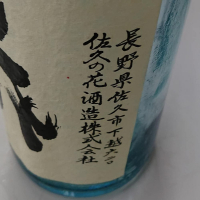 長野県佐久市下越六二〇
佐久の花酒造株式会社